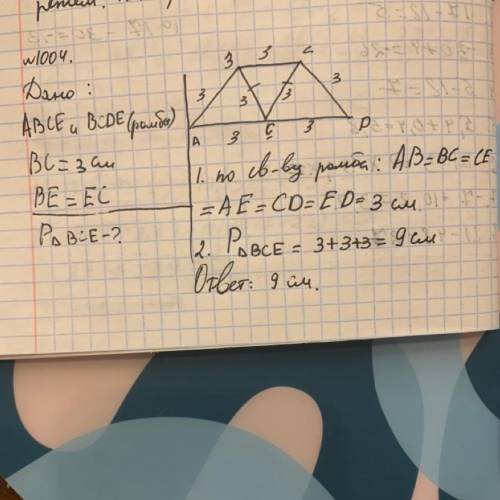 решем.
№1004.
Дано:
ABCE и BCDE (ромбы)
BC = 3 см
BE = EC
P△BCE - ?
3 3 C
3 3 3 3
A 3 E 3 D
1. по св-ву ромба: AB = BC = CE
= AE = CD = ED = 3 см
2. P△BCE = 3+3+3 = 9 см
Ответ: 9 см.